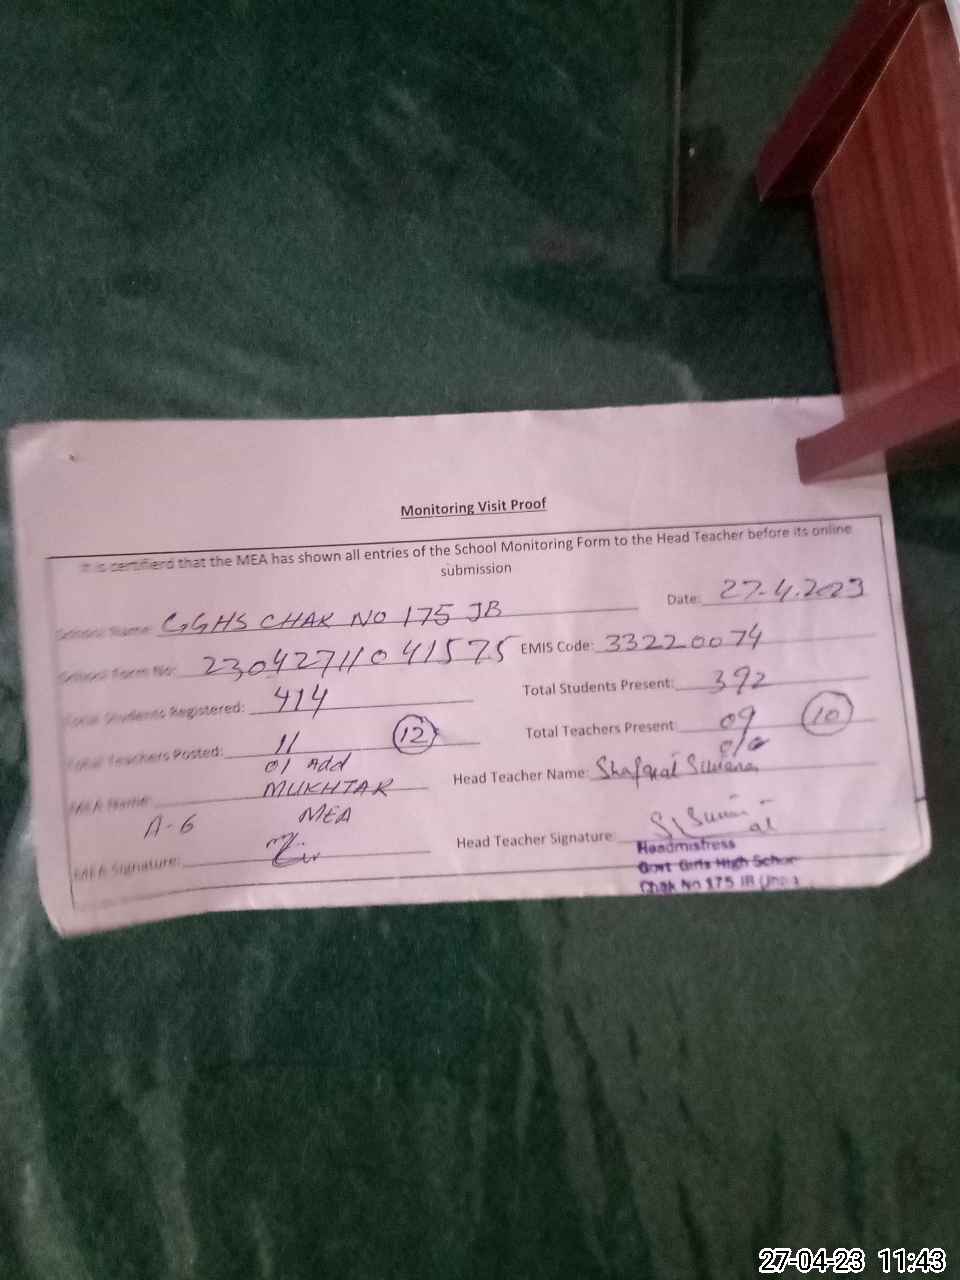 Monitoring Visit Proof
It is certifierd that the MEA has shown all entries of the School Monitoring Form to the Head Teacher before its online
submission
School Name: GGHS CHAK NO 175 JB Date: 27-4-2023
School Form No: 23042711041575 EMIS Code: 33220074
Total Students Registered: 414 Total Students Present: 392
Total Teachers Posted: 11 (12) Total Teachers Present: 09 (10)
01 Add
MEA Name: MUKHTAR Head Teacher Name: Shafqat
A-6 MEA
MEA Signature: Head Teacher Signature:
Headmistress
Govt Girls High School
Chak No 175 JB
27-04-23 11:43